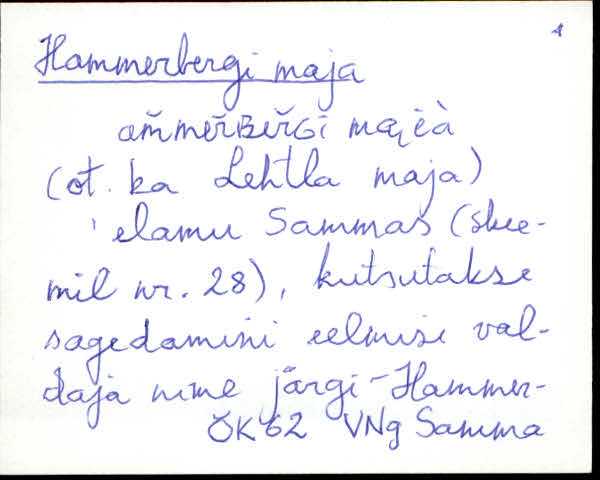 1
Hammerbergi maja
am̆mer̆ʙer̆ɢi majeà
(öt. ka Lehtla maja)
'elamu Sammas (skee-
mil nr. 28), kutsutakse
sagedamini eelmise val-
daja nime järgi - Hammer-
ÖK 62 VNg Samma